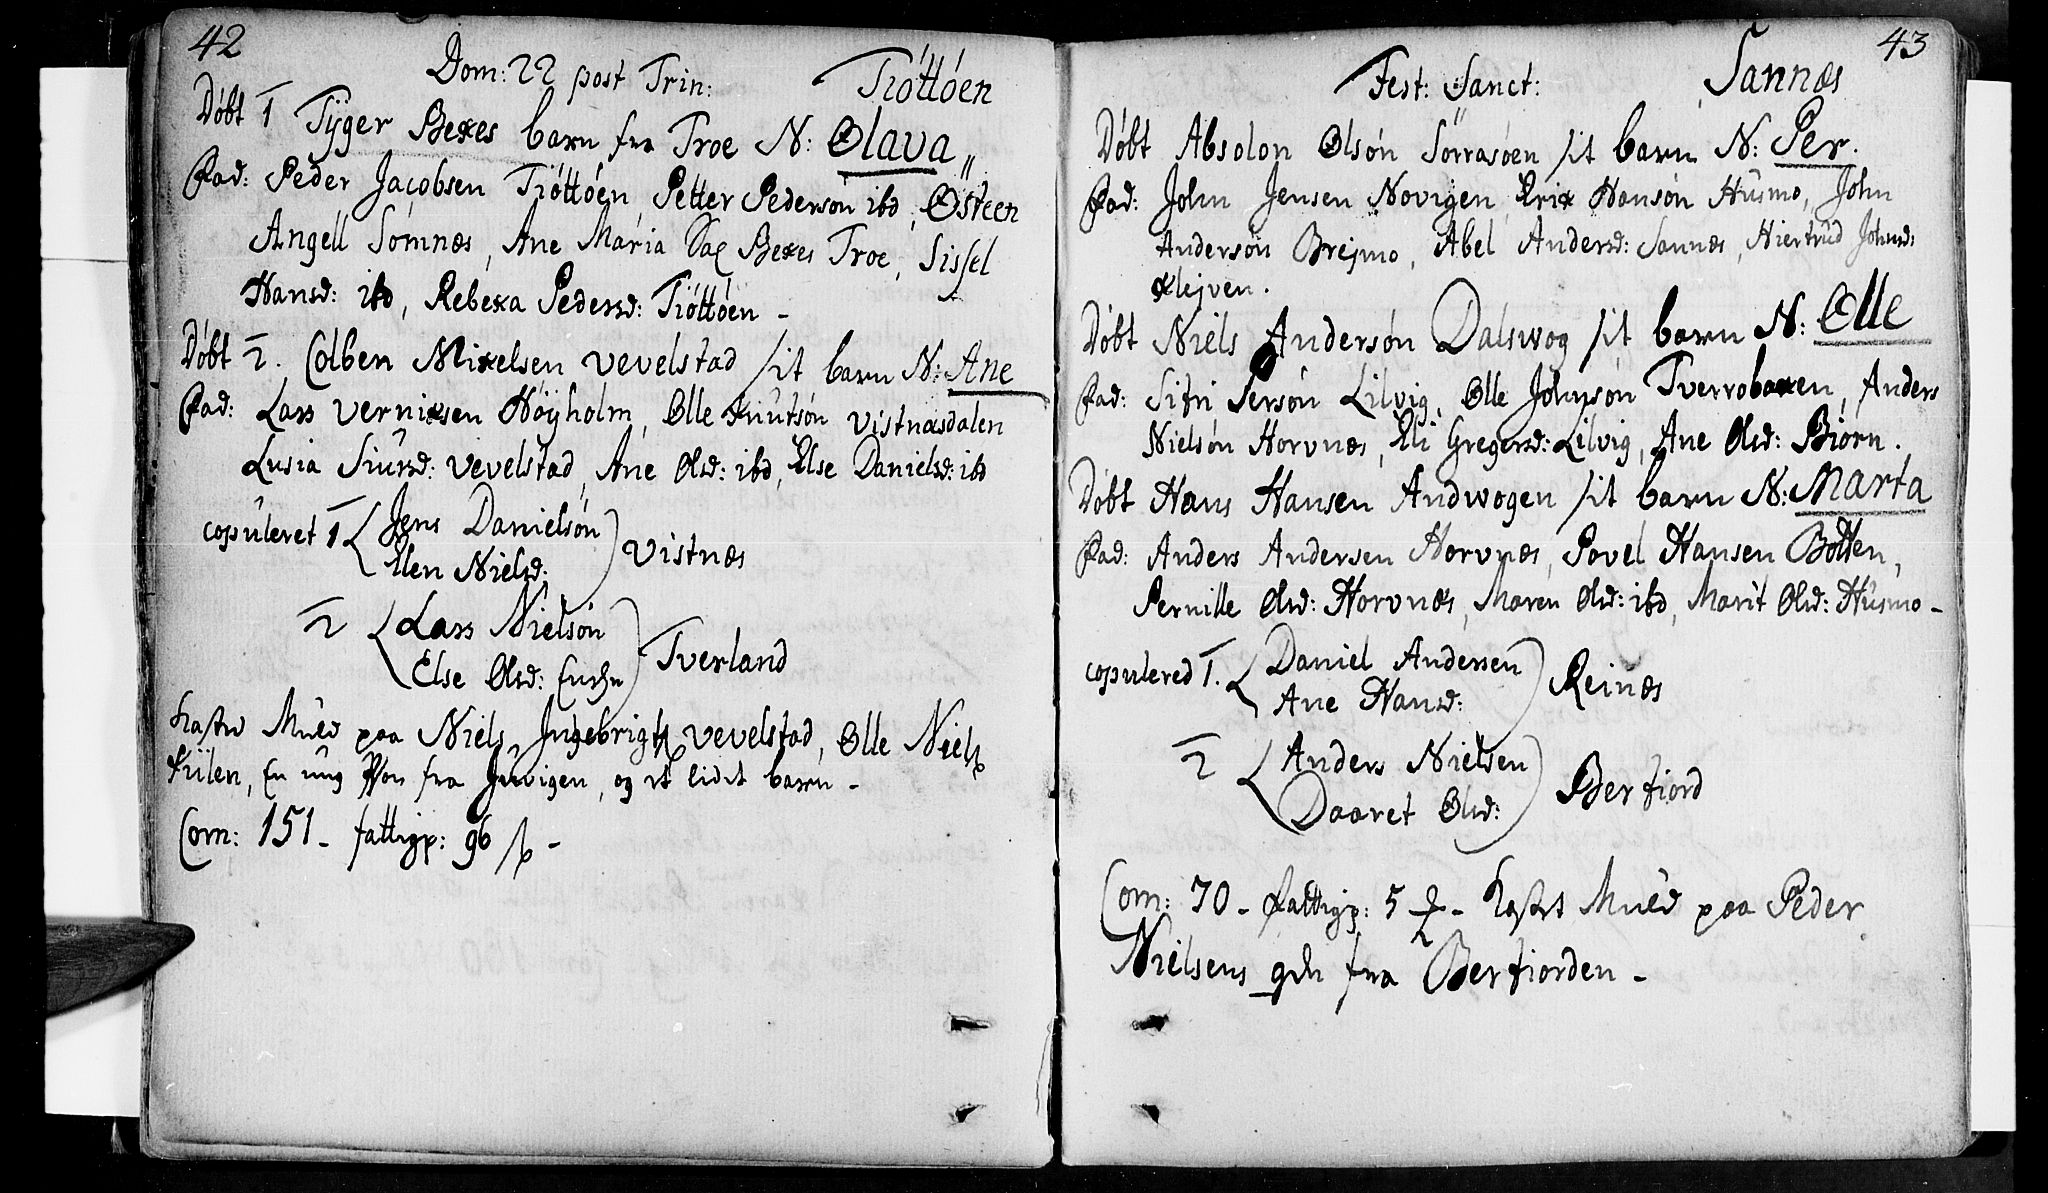 42
Dom: 22 post Trin: Tiöttöen
Döbt 1 Tÿger Bexes barn fra Troe N: Olava
Fad: Peder Jacobsen Tiöttöen, Petter Pedersön ibd, Østeen
Angell Sömnæs, Ane Maria Sal Bexes Troe, Sissel
Hansd: ibd, Rebexa Pedersd: Tiöttöen -
Döbt 2. Colben Mixelsen Vevelstad sit barn N: Ane
Fad: Lars Vernixsen Höÿholm, Olle Knutsön Vistnæsdalen
Lusia Siursd: Vevelstad, Ane Olsd: ibd, Else Danielsd: ibd
copuleret 1 Jens Danielsön
Elen Nielsd: Vistnæs
2 Lars Nielsön
Else Olsd: Tverland
Kasted Muld paa Niels Ingebrigts Vevelstad, Olle Niels
En ung fra , og et lidet barn -
Com: 151 - fattigp: 96 ß -
43
Fest: Sanct: Sannæs
Döbt Absolon Olsön Sörrasöen sit barn N: Per.
Fad: John Jensen Novigen, Erix Hansön Husmo, John
Andersön Brejmo, Abel Andersd: Sannæs, Hiertrud Johnsd:
xlejven.
Döbt Niels Andersön Dalswog sit barn N: Olle
Fad: Sifri Persön Lilvig, Olle Johnsön Tverrobaxen, Anders
Nielsön Horvnæs, Eli Gregersd: Lilvig, Ane Olsd: Biörn.
Döbt Hans Hansen Andwogen sit barn N: Marta
Fad: Anders Andersen Horvnæs, Povel Hansen Botten,
Pernille Olsd: Horvnæs, Maren Olsd: ibd, Marit Olsd: Husmo -
copulered 1. Daniel Andersen
Ane Hansd: Reinæs
2 Anders Nielsen
Daaret Olsd: Berfiord
Com: 70 - fattigp: 5 - Kastet Muld paa Peder
Nielsens fra Berfiorden -